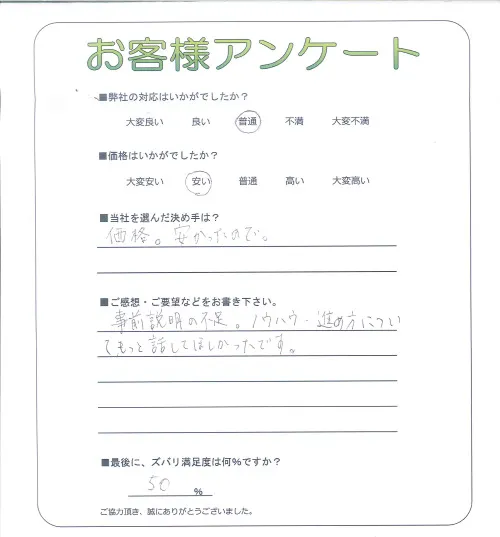 お客様アンケート
■弊社の対応はいかがでしたか？
大変良い 良い 普通 不満 大変不満
■価格はいかがでしたか？
大変安い 安い 普通 高い 大変高い
■当社を選んだ決め手は？
価格。安かったので。
■ご感想・ご要望などをお書き下さい。
事前説明の不足。ノウハウ・進め方につい
てもっと話してほしかったです。
■最後に、ズバリ満足度は何％ですか？
50 %
ご協力頂き、誠にありがとうございました。